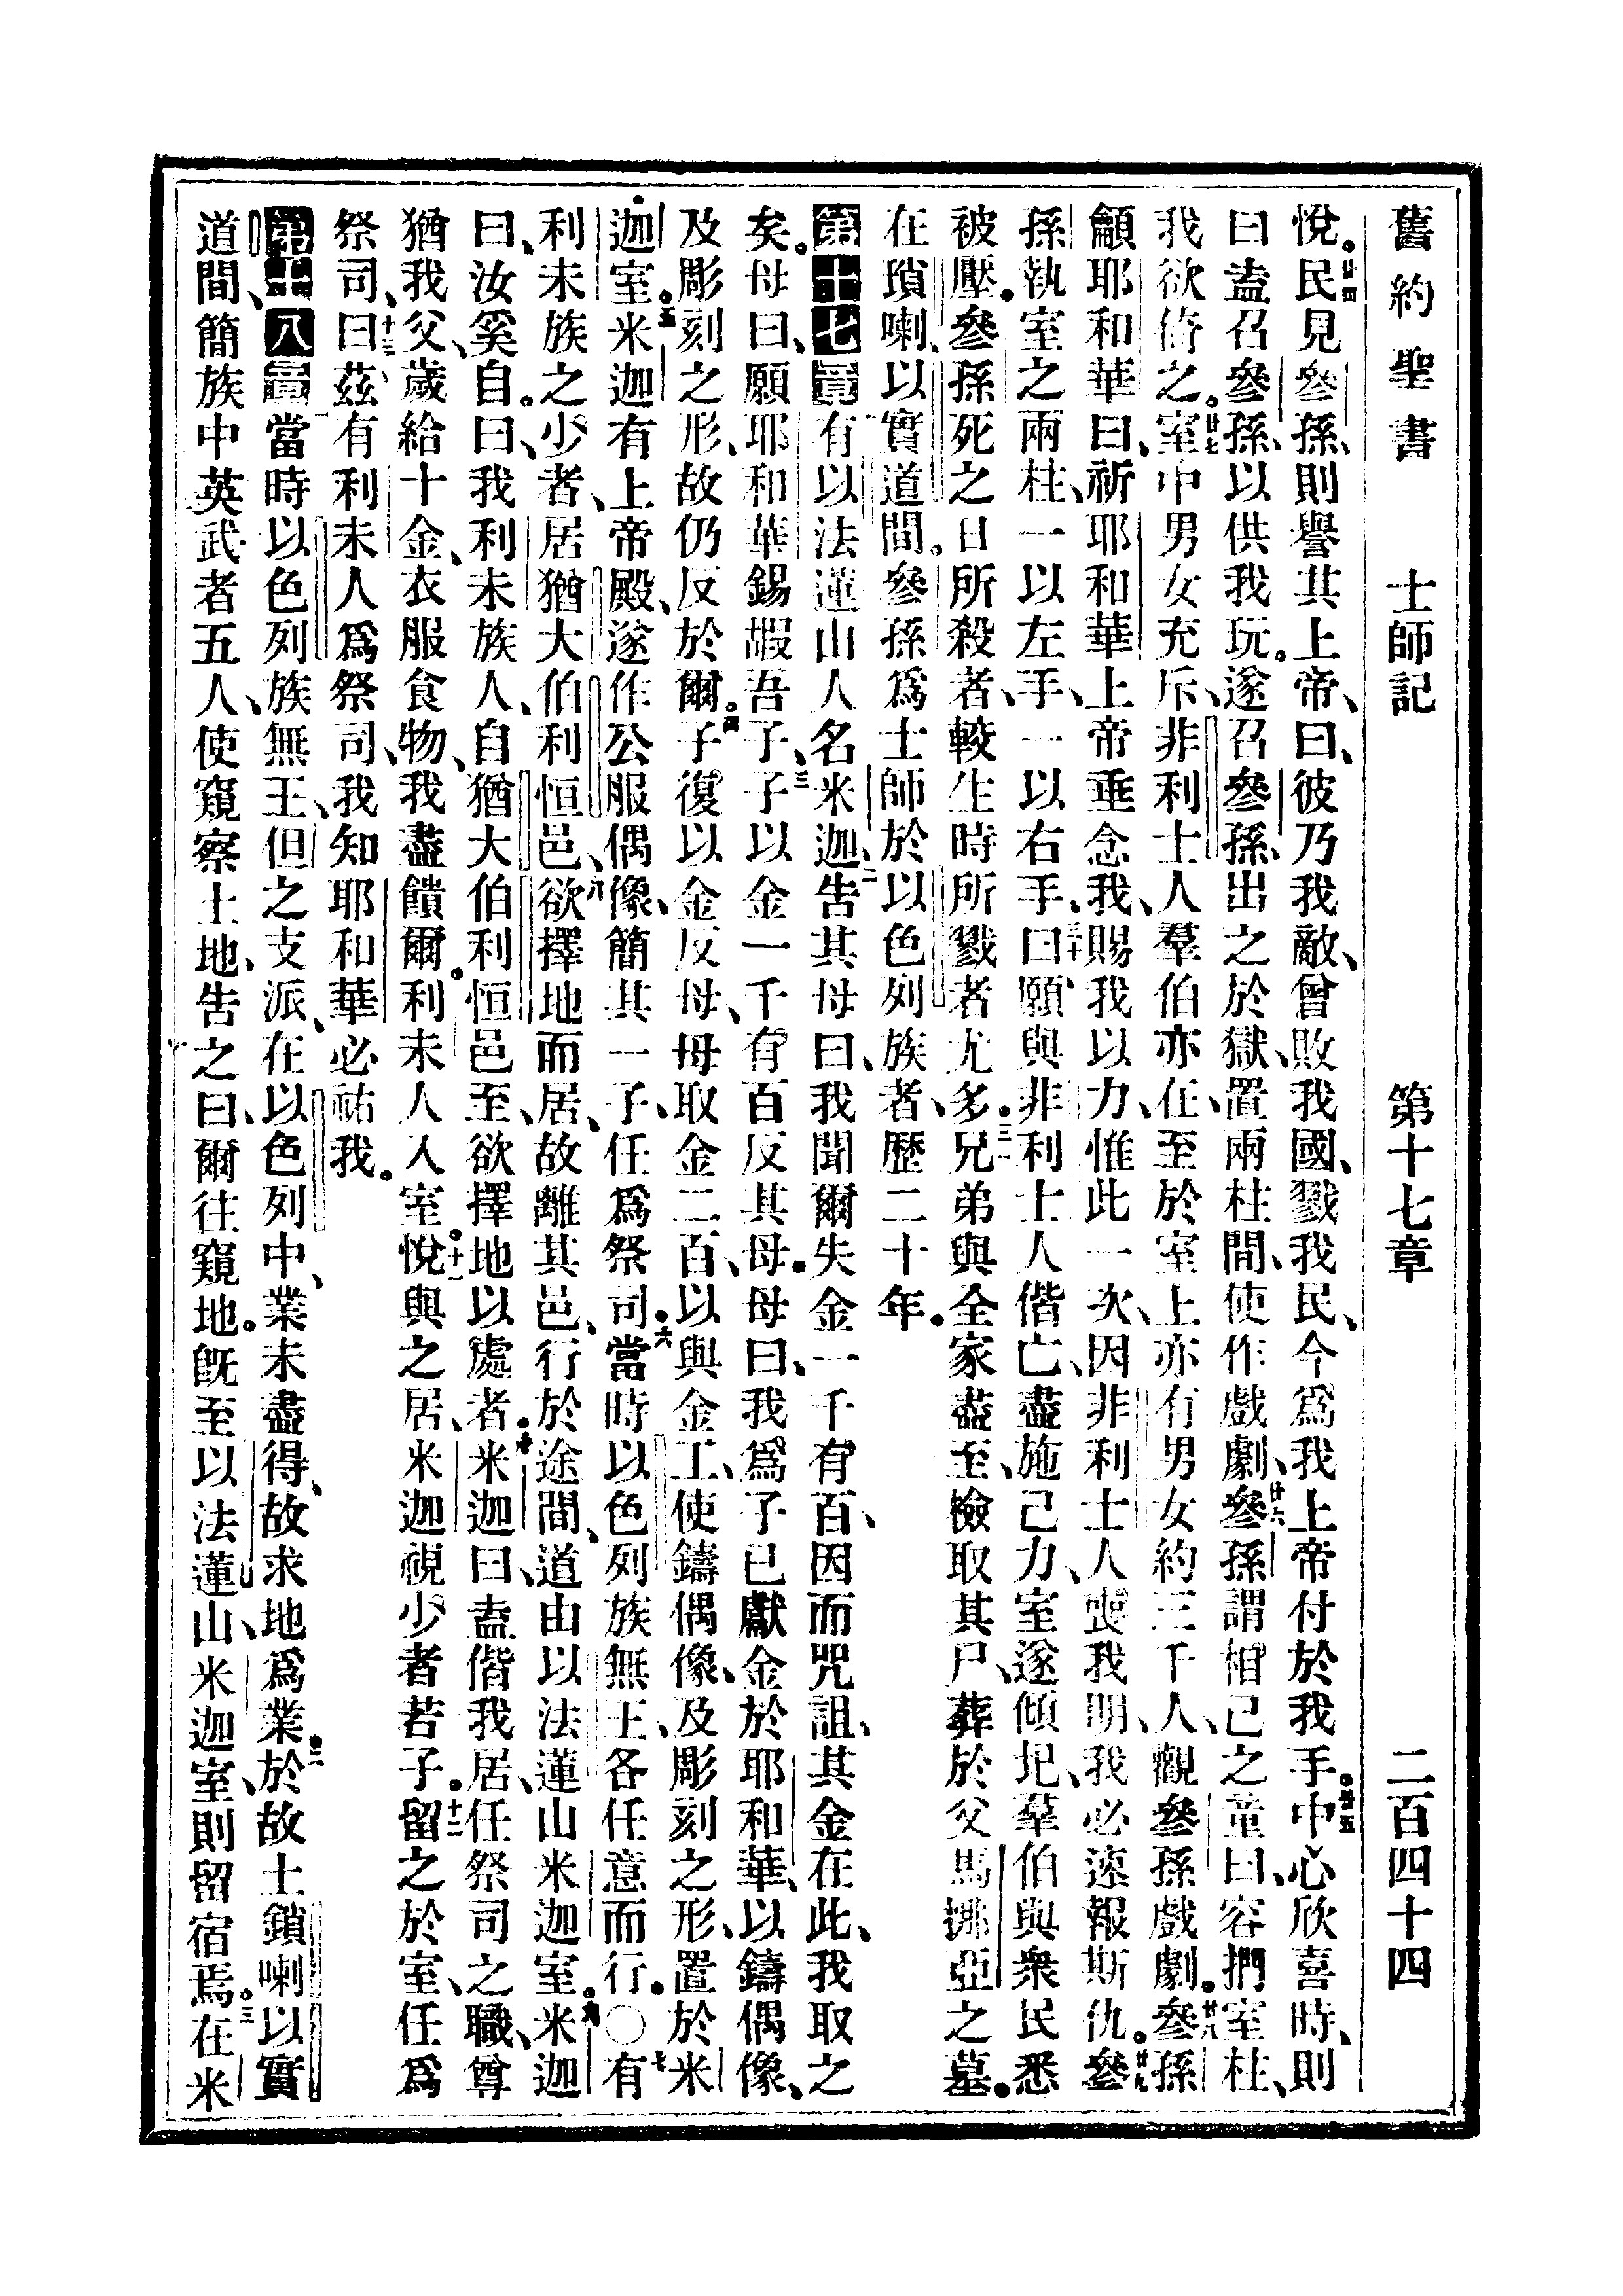 舊約聖書 士師記 第十七章 二百四十四
悅。廿四民見參孫、則譽其上帝、曰、彼乃我敵、曾敗我國、戮我民、今爲我上帝付於我手。廿五中心欣喜時、則
曰盍召參孫、以供我玩。遂召參孫、出之於獄、置兩柱間、使作戲劇、廿六參孫謂相己之童曰、容捫室柱、
我欲倚之。廿七室中男女充斥、非利士人羣伯亦在、至於室上亦有男女約三千人、觀參孫戲劇。廿八參孫
籲耶和華曰、祈耶和華上帝垂念我、賜我以力、惟此一次、因非利士人喪我明、我必速報斯仇。廿九參
孫執室之兩柱、一以左手、一以右手、三十曰、願與非利士人偕亡、盡施己力、室遂傾圮、羣伯與衆民悉
被壓。參孫死之日所殺者、較生時所戮者尤多。三一兄弟與全家盡至、檢取其尸、葬於父馬挪亞之墓。
在瑣喇、以實道間。參孫爲士師於以色列族者、歷二十年。
第十七章有以法蓮山人名米迦、二告其母曰、我聞爾失金一千有百、因而咒詛、其金在此、我取之
矣。母曰、願耶和華錫嘏吾子、三子以金一千有百反其母。母曰、我爲子已獻金於耶和華、以鑄偶像、
及彫刻之形、故仍反於爾。四子復以金反母、母取金二百、以與金工、使鑄偶像、及彫刻之形、置於米
迦室。五米迦有上帝殿、遂作公服偶像、簡其一子、任爲祭司。六當時以色列族無王、各任意而行。〇七有
利未族之少者、居猶大伯利恒邑、八欲擇地而居、故離其邑、行於途間、道由以法蓮山米迦室。九米迦
曰、汝奚自。曰、我利未族人、自猶大伯利恒邑至、欲擇地以處者。十米迦曰、盍偕我居、任祭司之職、尊
猶我父、歲給十金、衣服食物、我盡饋爾。利未人入室。十一悅與之居、米迦視少者若子。十二留之於室、任爲
祭司、十三曰、茲有利未人爲祭司、我知耶和華必祐我。
第十八章當時以色列族無王、但之支派、在以色列中、業未盡得、故求地爲業。二於故土鎖喇以實
道間、簡族中英武者五人、使窺察土地、告之曰、爾往窺地。旣至以法蓮山、米迦室、則留宿焉。三在米